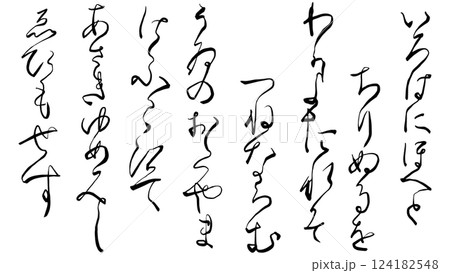 いろはにほへと
ちりぬるを
わかよたれそ
つねならむ
うゐのおくやま
けふこえて
あさきゆめみし
ゑひもせす
pixta
124182548